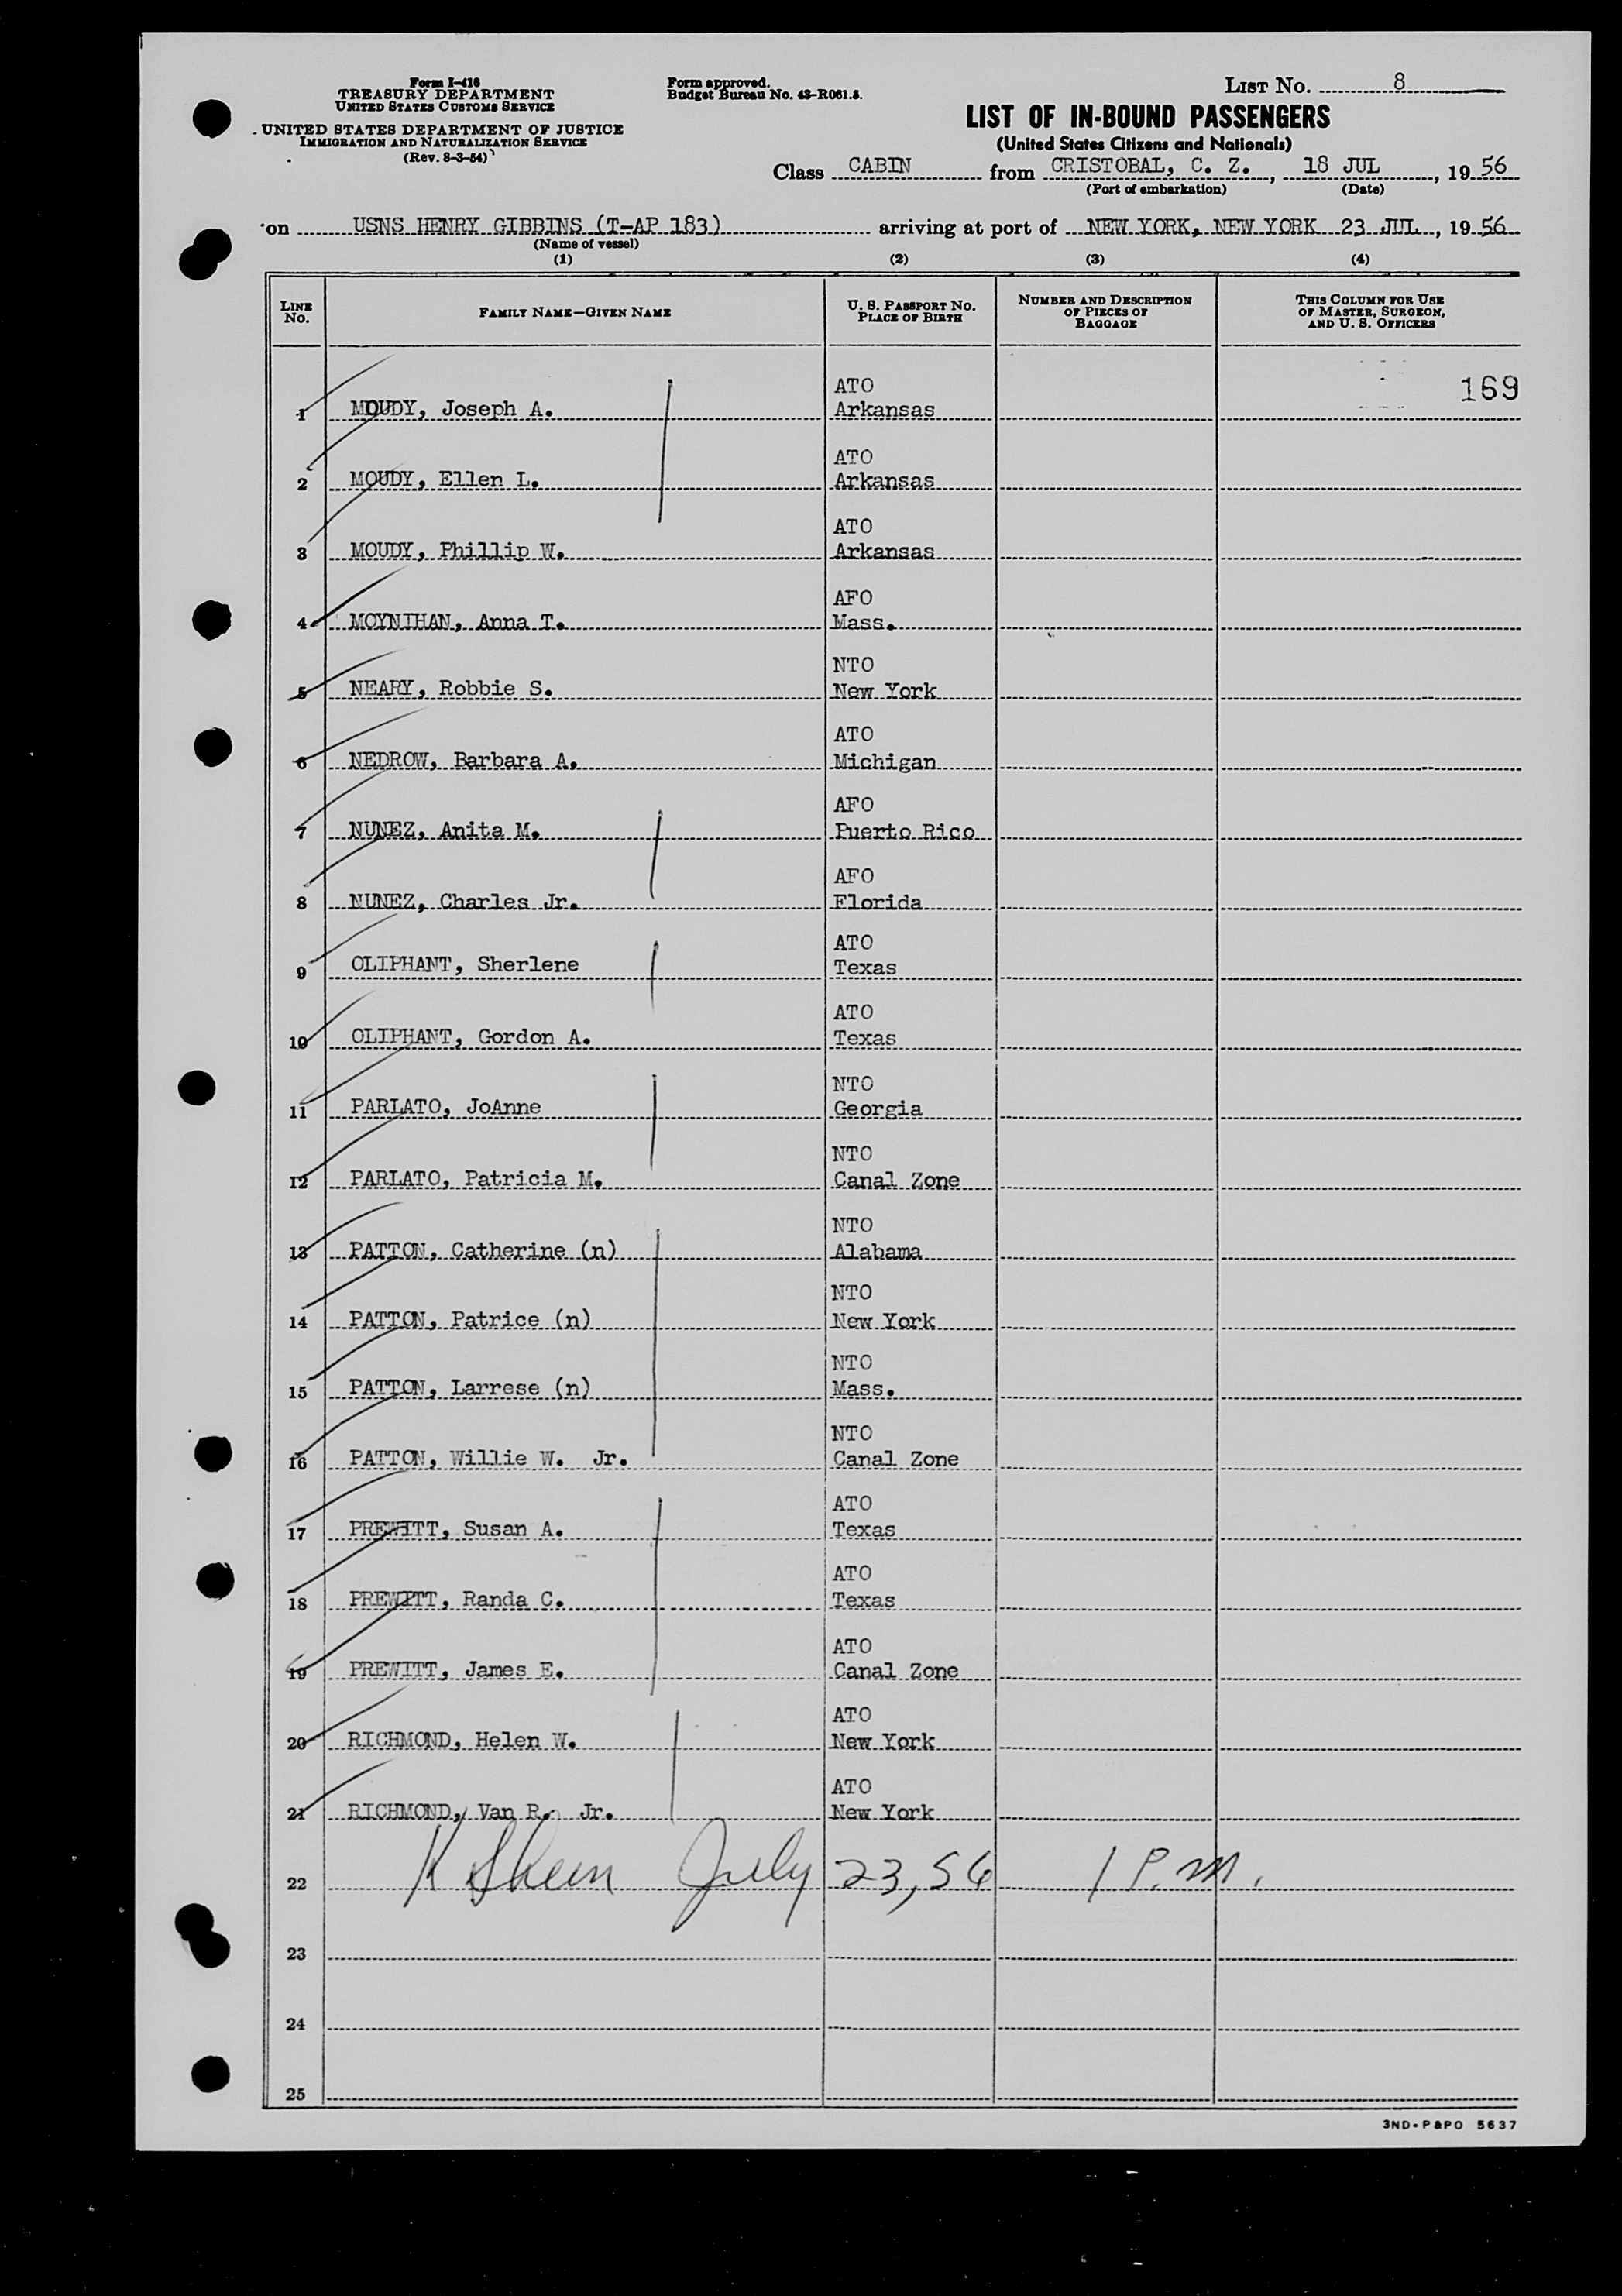 Form I-416
TREASURY DEPARTMENT
UNITED STATES CUSTOMS SERVICE
UNITED STATES DEPARTMENT OF JUSTICE
IMMIGRATION AND NATURALIZATION SERVICE
(Rev. 8-3-54)
Form approved.
Budget Bureau No. 43-R061.5.
LIST NO. 8
LIST OF IN-BOUND PASSENGERS
(United States Citizens and Nationals)
Class CABIN from CRISTOBAL, C. Z., 18 JUL, 1956
(Port of embarkation) (Date)
on USNS HENRY GIBBINS (T-AP 183) arriving at port of NEW YORK, NEW YORK 23 JUL, 1956
(Name of vessel)
(1) (2) (3) (4)
LINE NO. FAMILY NAME—GIVEN NAME U. S. PASSPORT NO. PLACE OF BIRTH NUMBER AND DESCRIPTION OF PIECES OF BAGGAGE THIS COLUMN FOR USE OF MASTER, SURGEON, AND U. S. OFFICERS
ATO 169
1 MOUDY, Joseph A. Arkansas
ATO
2 MOUDY, Ellen L. Arkansas
ATO
3 MOUDY, Phillip W. Arkansas
AFO
4 MOYNIHAN, Anna T. Mass.
NTO
5 NEARY, Robbie S. New York
ATO
6 NEDROW, Barbara A. Michigan
AFO
7 NUNEZ, Anita M. Puerto Rico
AFO
8 NUNEZ, Charles Jr. Florida
ATO
9 OLIPHANT, Sherlene Texas
ATO
10 OLIPHANT, Gordon A. Texas
NTO
11 PARLATO, JoAnne Georgia
NTO
12 PARLATO, Patricia M. Canal Zone
NTO
13 PATTON, Catherine (n) Alabama
NTO
14 PATTON, Patrice (n) New York
NTO
15 PATTON, Larrese (n) Mass.
NTO
16 PATTON, Willie W. Jr. Canal Zone
ATO
17 PREWITT, Susan A. Texas
ATO
18 PREWITT, Randa C. Texas
ATO
19 PREWITT, James E. Canal Zone
ATO
20 RICHMOND, Helen W. New York
ATO
21 RICHMOND, Van R. Jr. New York
22 K Sheen July 23, 56 1 P.M.
23
24
25
3ND-P&PO 5637